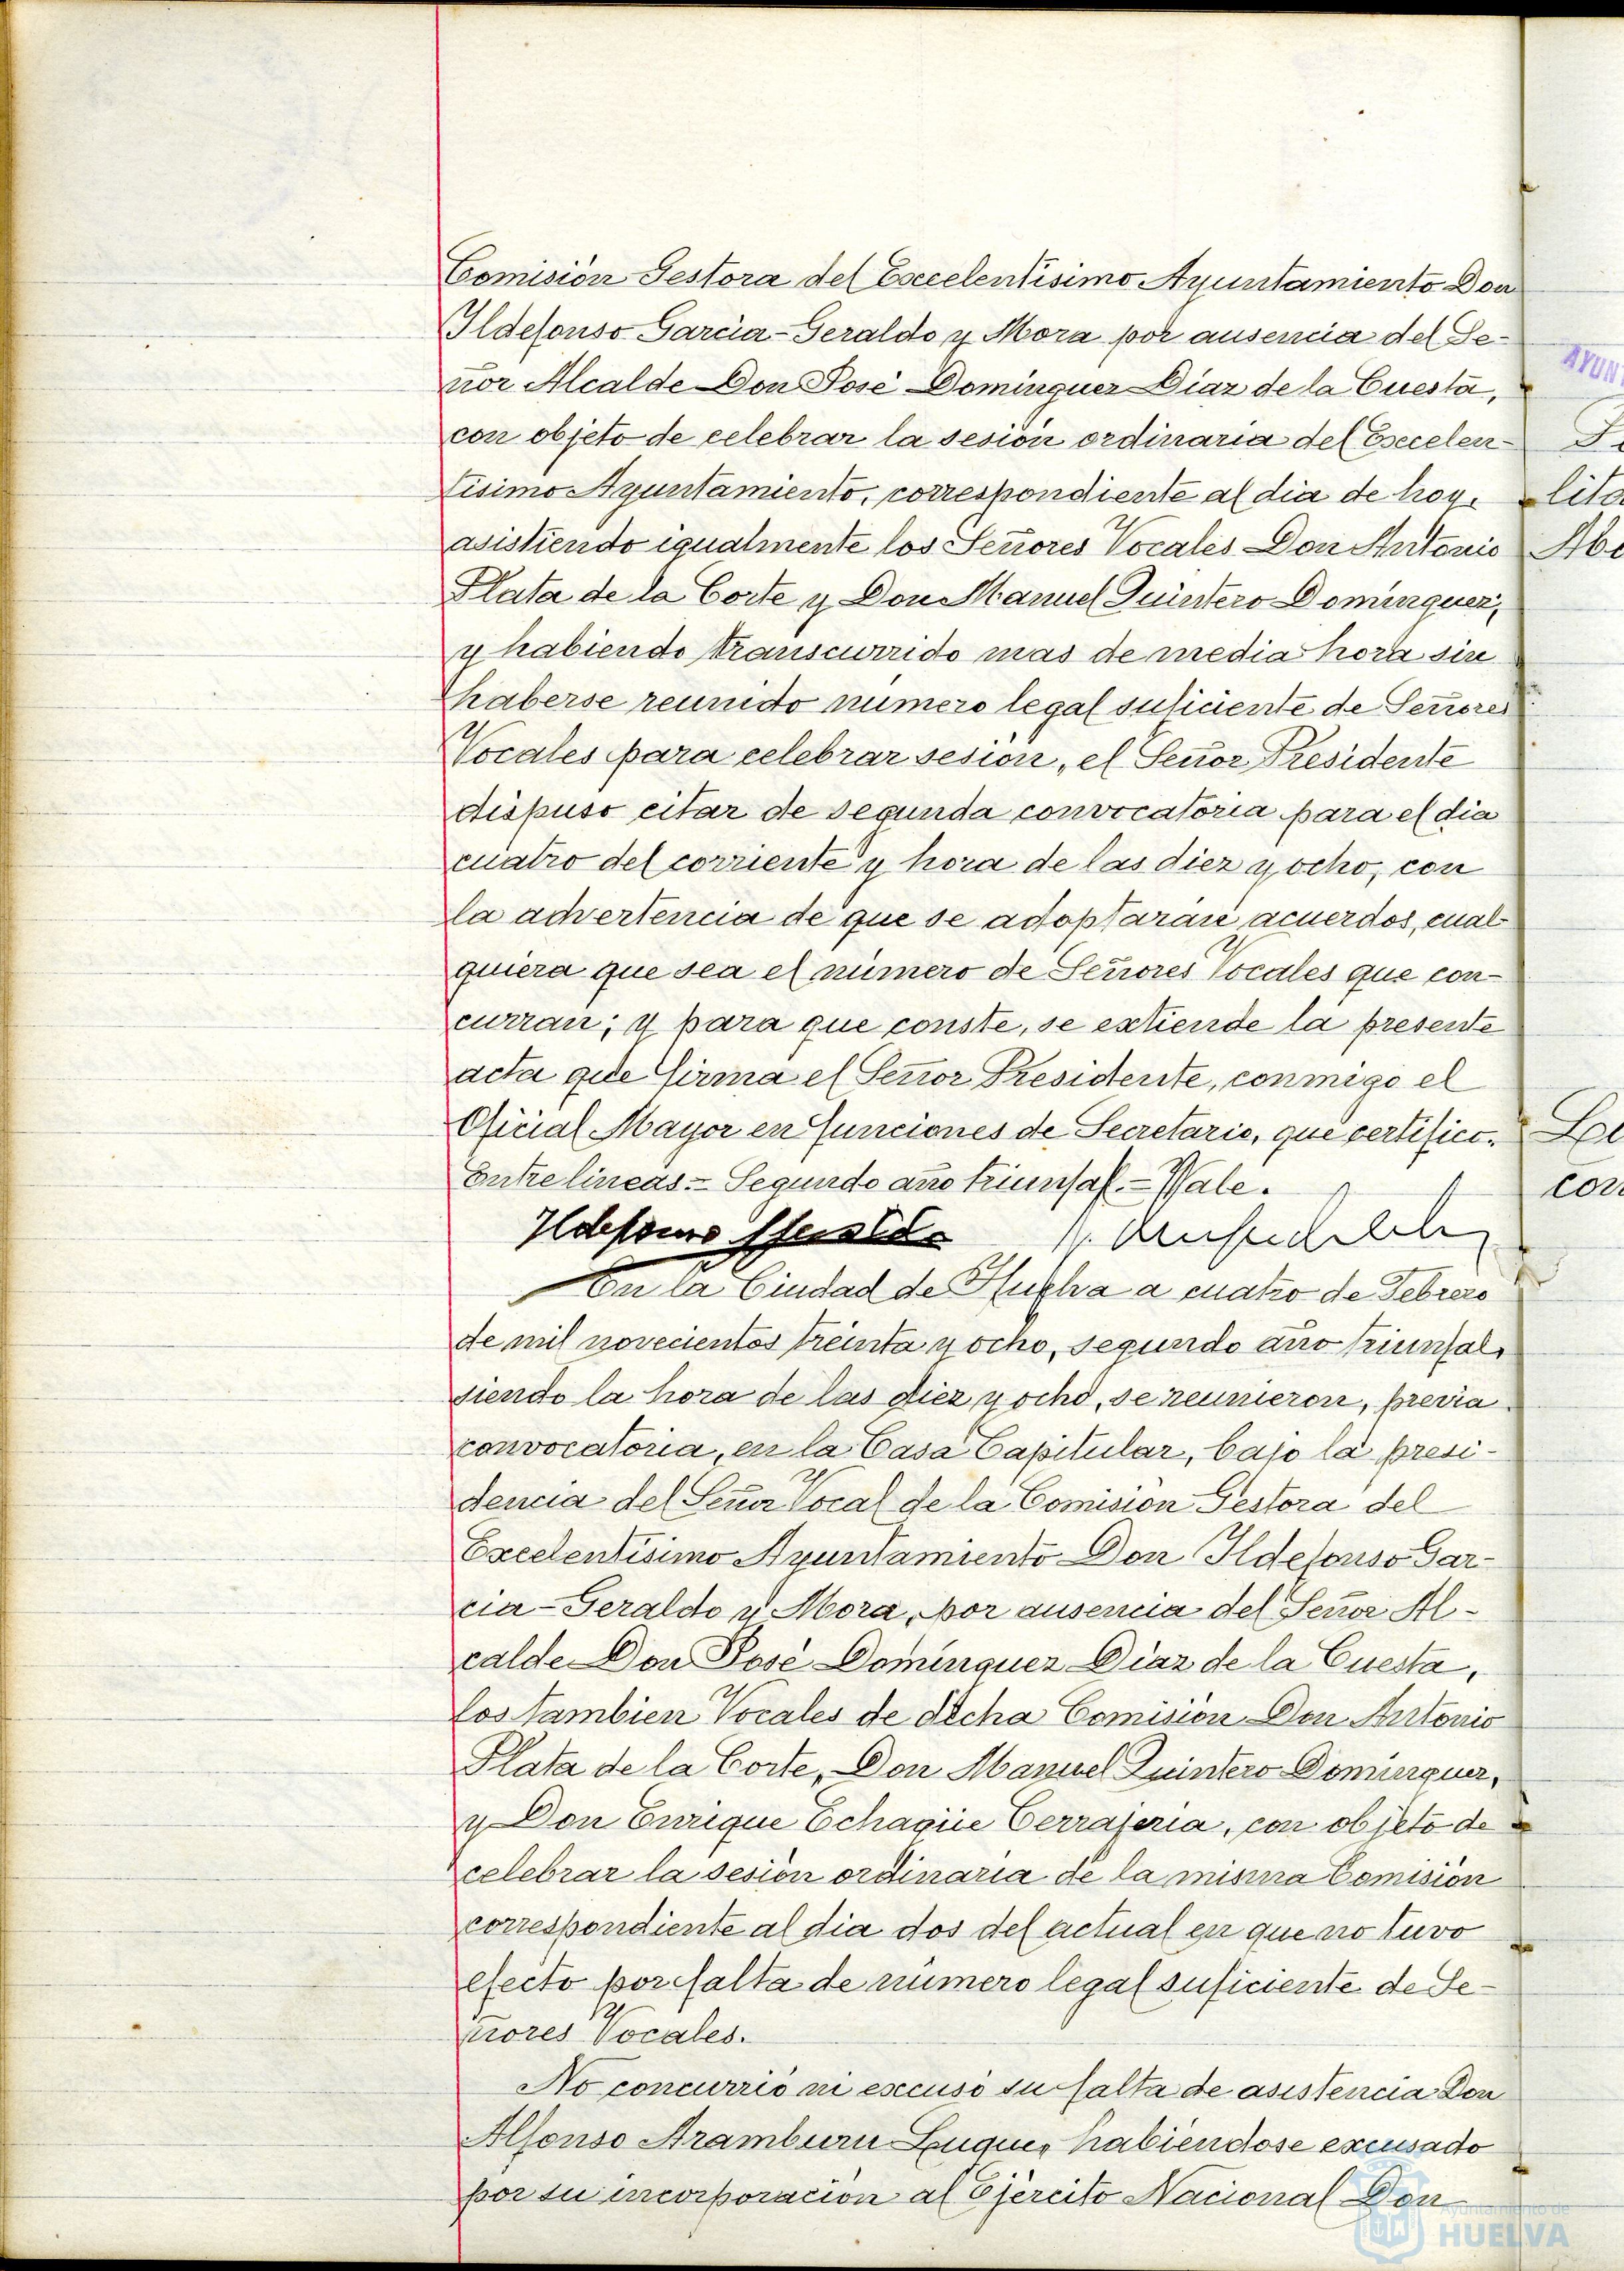 Comisión Gestora del Excelentísimo Ayuntamiento Don
Ildefonso García-Geraldo y Mora por ausencia del Se-
ñor Alcalde Don José Domínguez Díaz de la Cuesta,
con objeto de celebrar la sesión ordinaria del Excelen-
tísimo Ayuntamiento, correspondiente al dia de hoy,
asistiendo igualmente los Señores Vocales Don Antonio
Plata de la Corte y Don Manuel Quintero Domínguez,
y habiendo transcurrido mas de media hora sin
haberse reunido número legal suficiente de Señores
Vocales para celebrar sesion, el Señor Presidente
dispuso citar de segunda convocatoria para el dia
cuatro del corriente y hora de las diez y ocho, con
la advertencia de que se adoptarán acuerdos, cual-
quiera que sea el número de Señores Vocales que con-
curran; y para que conste, se extiende la presente
acta que firma el Señor Presidente, conmigo el
Oficial Mayor en funciones de Secretario, que certifico.
Entrelineas = Segundo año triunfal. = Vale.
Ildefonso
En la Ciudad de Huelva a cuatro de Febrero
de mil novecientos treinta y ocho, segundo año triunfal,
siendo la hora de las diez y ocho, se reunieron, previa
convocatoria, en la Casa Capitular, bajo la presi-
dencia del Señor Vocal de la Comisión Gestora del
Excelentísimo Ayuntamiento Don Ildefonso Gar-
cia-Geraldo y Mora, por ausencia del Señor Al-
calde Don José Domínguez Díaz de la Cuesta,
los tambien Vocales de dicha Comisión Don Antonio
Plata de la Corte, Don Manuel Quintero Domínguez,
y Don Enrique Echagüe Cerrajería, con objeto de
celebrar la sesión ordinaria de la misma Comisión
correspondiente al dia dos del actual en que no tuvo
efecto por falta de número legal suficiente de Se-
ñores Vocales.
No concurrió ni excusó su falta de asistencia Don
Alfonso Aramburu Luque, habiéndose excusado
por su incorporación al Ejército Nacional Don
AYUN
lita
con
Ayuntamiento de
HUELVA